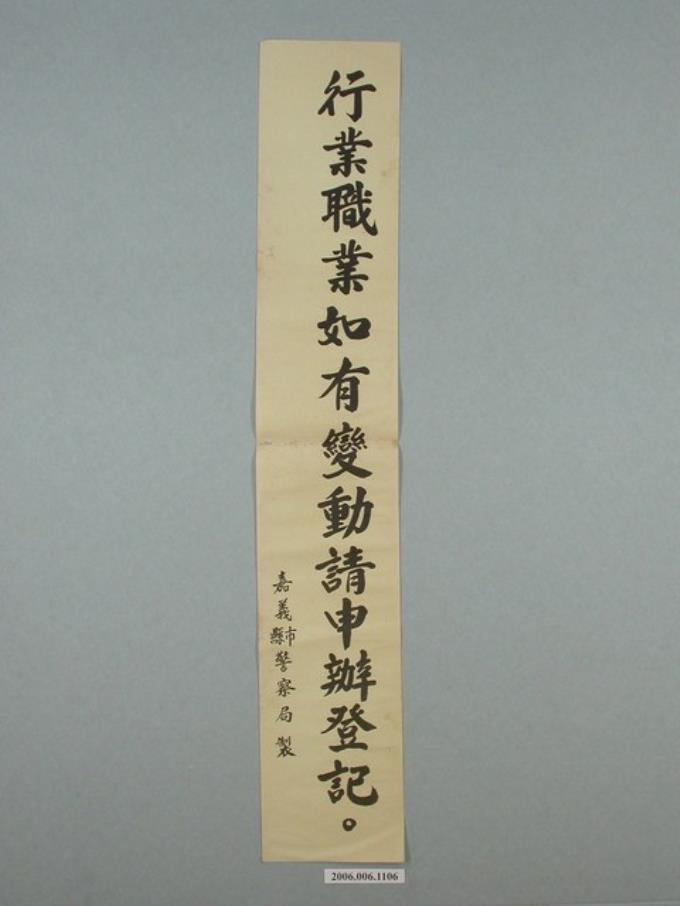 行業職業如有變動請申辦登記。
嘉義縣市警察局 製
2006.006.1106